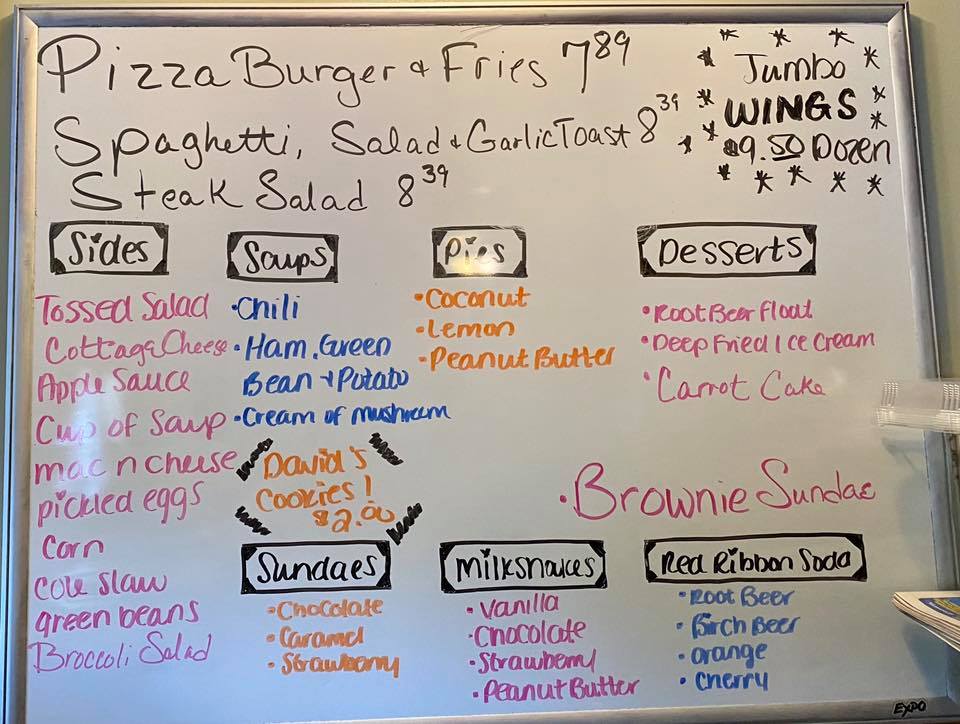 Pizza Burger & Fries 7.89
Spaghetti, Salad & Garlic Toast 8.39
Steak Salad 8.39
Jumbo
WINGS
$9.50 Dozen
Sides
Tossed Salad
Cottage Cheese
Apple Sauce
Cup of Soup
mac n cheese
pickled eggs
Corn
cole slaw
green beans
Broccoli Salad
Soups
• Chili
• Ham, Green
Bean & Potato
• Cream of mushroom
David's
Cookies!
$2.00
Pies
• Coconut
• Lemon
• Peanut Butter
Desserts
• Root Beer Float
• Deep Fried Ice Cream
• Carrot Cake
• Brownie Sundae
Sundaes
• Chocolate
• Caramel
• Strawberry
Milkshakes
• Vanilla
• Chocolate
• Strawberry
• Peanut Butter
Red Ribbon Soda
• Root Beer
• Birch Beer
• Orange
• Cherry
EXPO